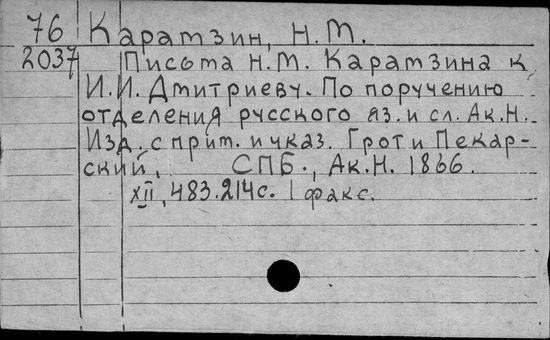 76 Карамзин, Н.М.
2037 Письма Н.М. Карамзина к
И.И. Дмитриеву. По поручению
отделения русского яз. и сл. Ак.Н.
Изд. с прим. и указ. Грот и Пекар-
ский, СПБ., Ак.Н. 1866.
XII, 483.214с. 1 факс.